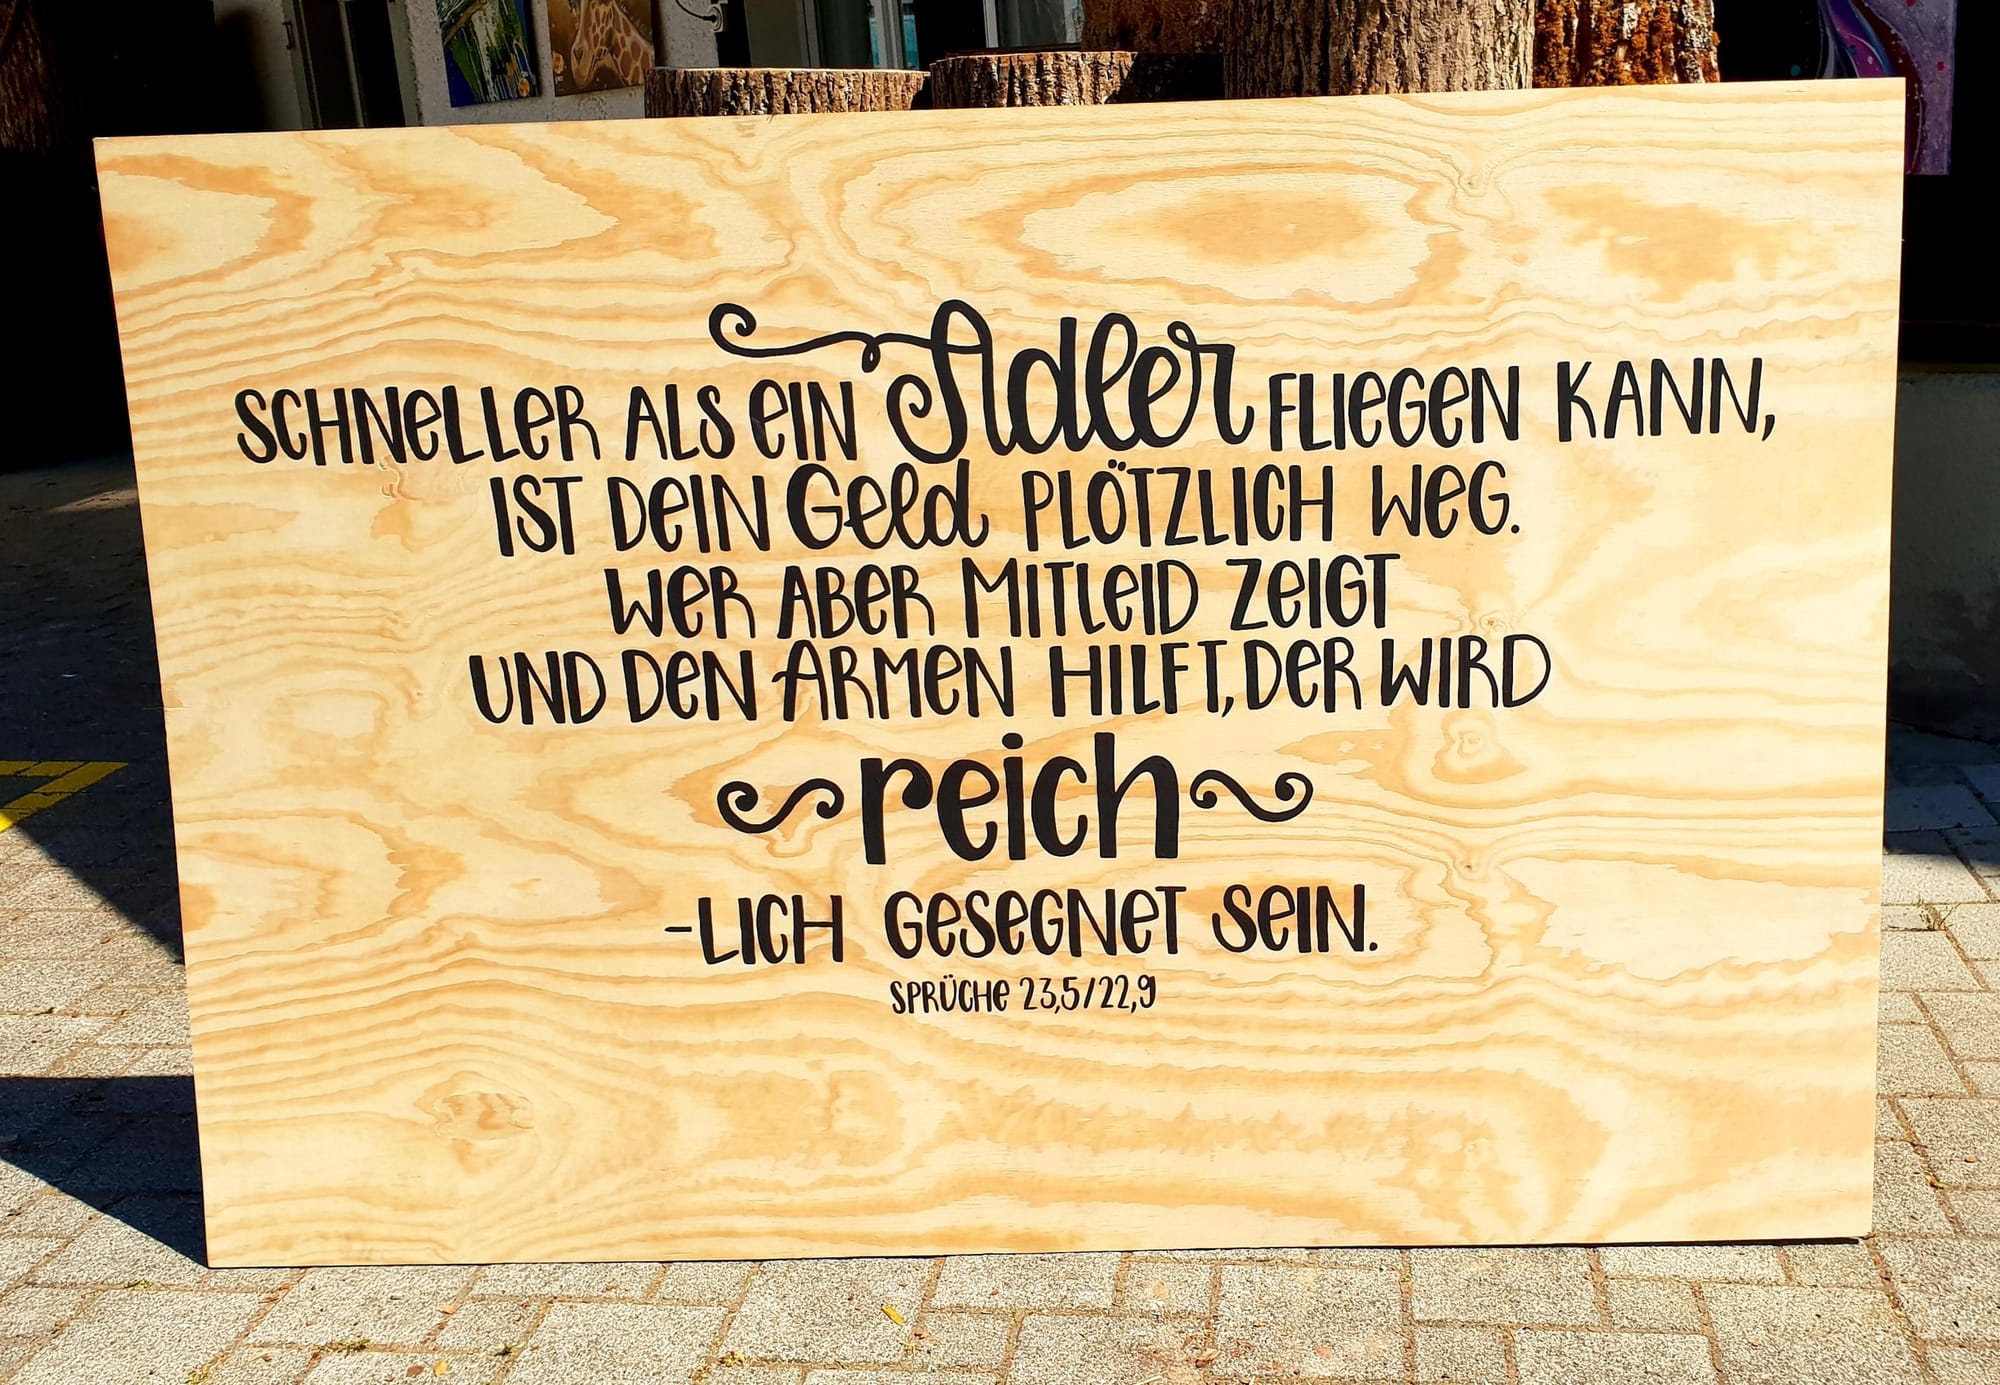 SCHNELLER ALS EIN Adler FLIEGEN KANN,
IST DEIN Geld PLÖTZLICH WEG.
WER ABER MITLEID ZEIGT
UND DEN ARMEN HILFT, DER WIRD
reich
-LICH GESEGNET SEIN.
SPRÜCHE 23,5/22,9